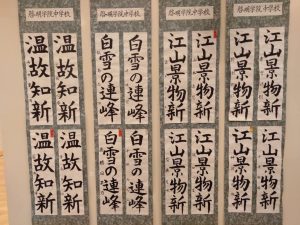 啓明学院中学校
温故知新
温故知新
温故知新
温故知新
白雪の連峰
白雪の連峰
白雪の連峰
白雪の連峰
啓明学院中学校
江山景物新
江山景物新
江山景物新
江山景物新
啓明学院中学校
江山景物新
江山景物新
江山景物新
江山景物新